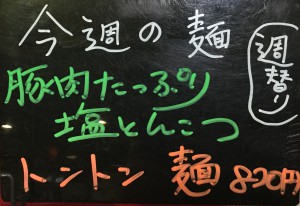 今週の麺
週替り
豚肉たっぷり
塩とんこつ
トントン 麺 820円